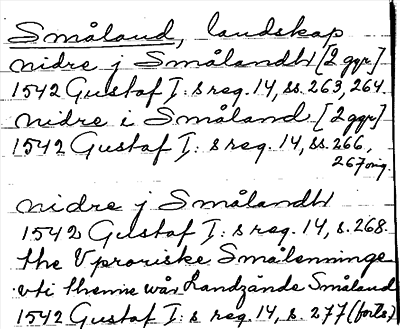 Småland, landskap
nidre j Smålandh [2 ggr]
1542 Gustaf I: s reg. 14, ss. 263, 264.
nidre i Småland [2 ggr]
1542 Gustaf I: s reg. 14, ss. 266,
267 orig.
nidre j Smålandh
1542 Gustaf I: s reg. 14, s. 268.
the Vproriske Smålenninge
vti thenne wår Landzände Småland
1542 Gustaf I: s reg. 14, s. 277 (forts.)